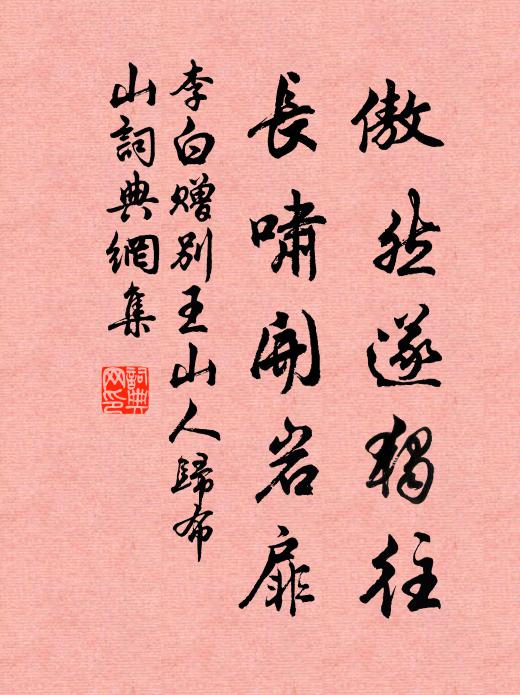 傲然遂獨往
長嘯開岩扉
李白贈別王山人歸布
山詞典網集
詞典網印